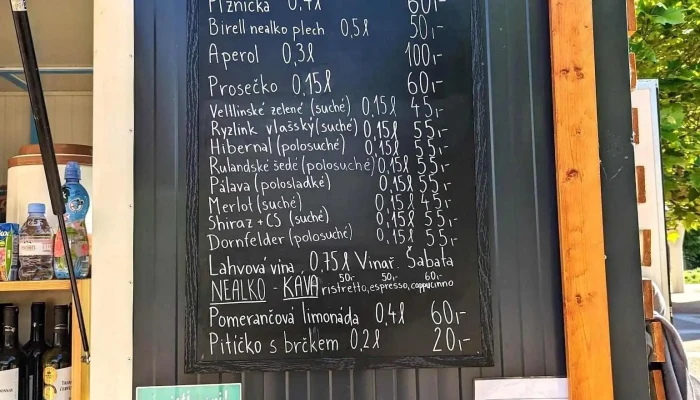 Plznička 0,4l 60,-
Birell nealko plech 0,5l 50,-
Aperol 0,3l 100,-
Prosečko 0,15l 60,-
Veltlinské zelené (suché) 0,15l 45,-
Ryzlink vlašský (suché) 0,15l 55,-
Hibernal (polosuché) 0,15l 55,-
Rulandské šedé (polosuché) 0,15l 55,-
Pálava (polosladké) 0,15l 55,-
Merlot (suché) 0,15l 45,-
Shiraz + CS (suché) 0,15l 55,-
Dornfelder (polosuché) 0,15l 55,-
Lahvová vína 0,75l Vinař. Šabata
50,- 50,- 60,-
NEALKO - KÁVA ristretto, espresso, cappucinno
Pomerančová limonáda 0,4l 60,-
Pitíčko s brčkem 0,2l 20,-